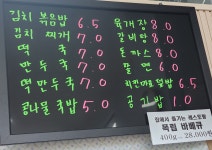 김치 볶음밥 6.5
김치 찌개 7.0
떡 국 7.0
만두국 7.0
떡만두국 7.0
콩나물국밥 5.0
육개장 8.0
갈비탕 8.0
돈까스 8.0
쫄면 6.0
치킨마요덮밥 6.5
공기밥 1.0
집에서 즐기는 레스토랑
목림 바베큐
400g - 28,000원